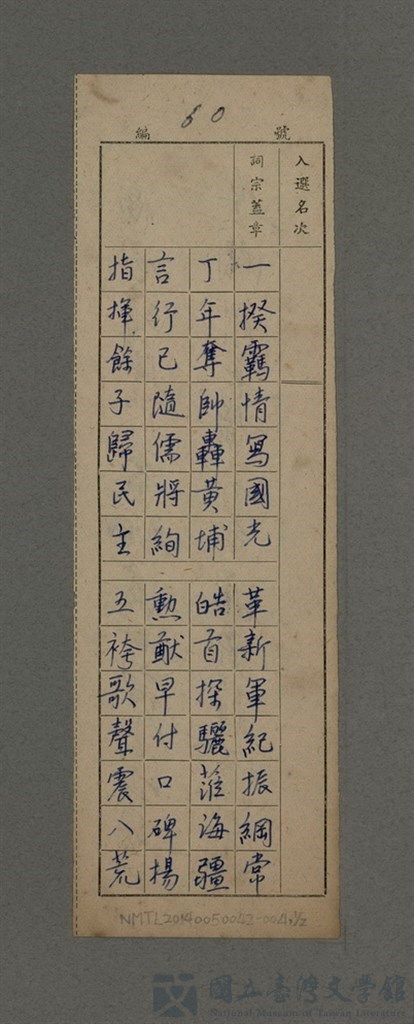 編 60 號
入選名次
詞宗蓋章
一揆羈情寫國光 革新軍紀振綱常
丁年奪帥轟黃埔 皓首探驪莅海疆
言行已隨儒將絢 勲猷早付口碑揚
指揮餘子歸民主 五袴歌聲震八荒
NMTL20140050042-004·1/2
國立臺灣文學館
National Museum of Taiwan Literature